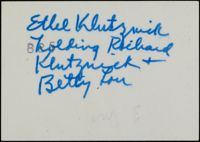 Ethel Klutznick
holding Richard
Klutznick +
Betty Lou